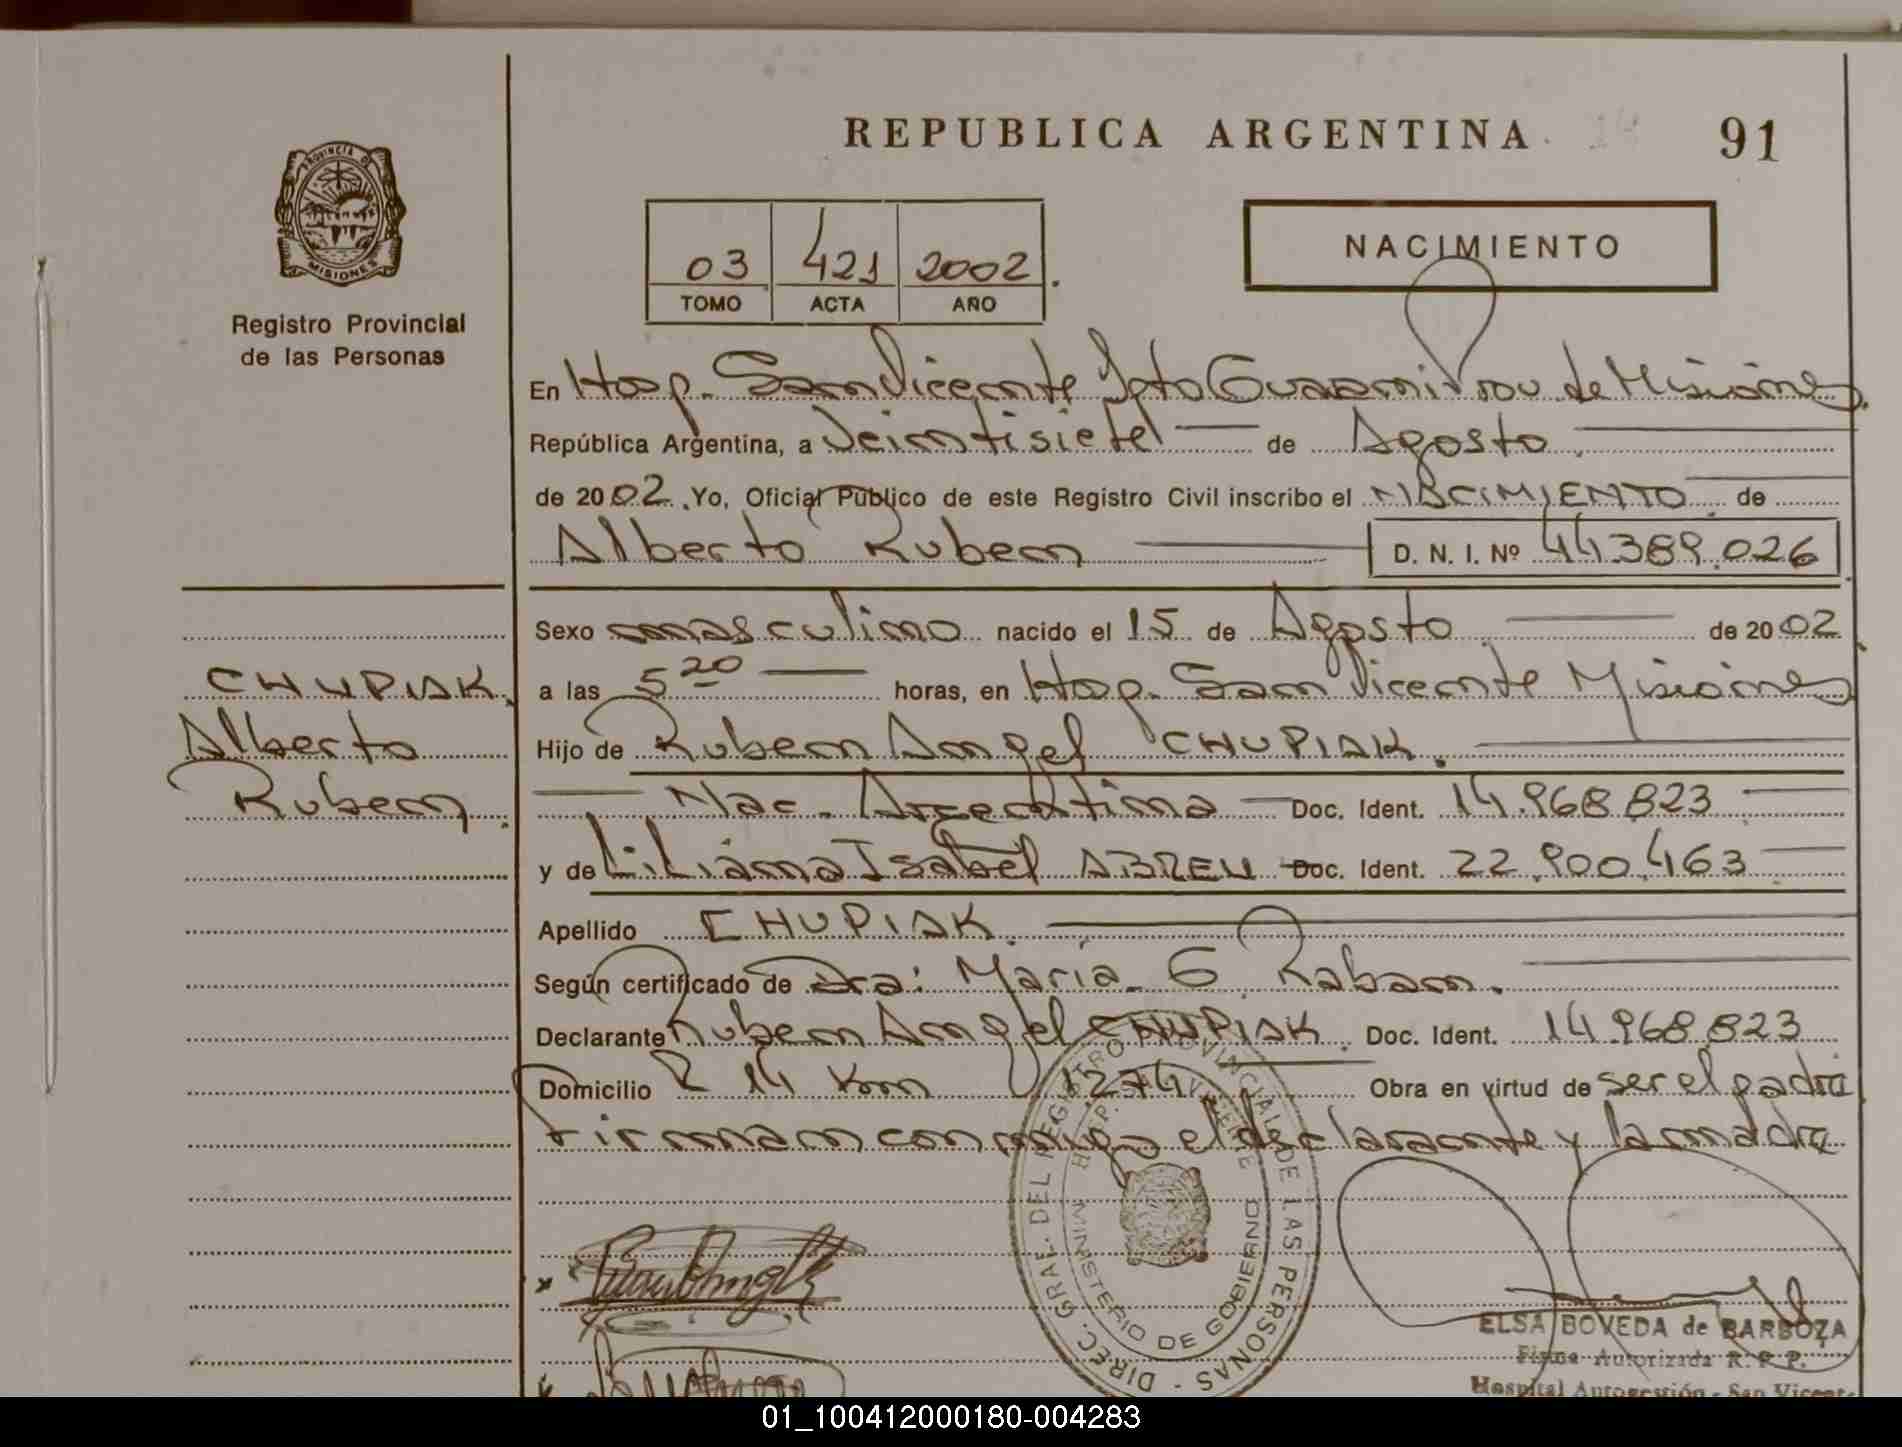 REPUBLICA ARGENTINA
91
PROVINCIA DE
MISIONES
Registro Provincial
de las Personas
03 421 2002
TOMO ACTA AÑO
NACIMIENTO
En Hosp. San Vicente Dpto Guarani Prov. de Misiones
República Argentina, a Veintisiete de Agosto
de 2002. Yo, Oficial Público de este Registro Civil inscribo el NACIMIENTO de
Alberto Ruben D. N. I. Nº 44.389.026
Sexo masculino nacido el 15 de Agosto de 2002
a las 5 20 horas, en Hosp. San Vicente Misiones
Hijo de Ruben Angel CHUPIAK.
Nac. Argentina Doc. Ident. 14.968.823
y de Liliana Isabel ABREU Doc. Ident. 22.900.463
Apellido CHUPIAK
Según certificado de Dra: María G Raban.
Declarante Ruben Angel CHUPIAK. Doc. Ident. 14.968.823
Domicilio R 14 Km 1274 Obra en virtud de ser el padre
Firman conmigo el declarante y la madre
CHUPIAK,
Alberto
Ruben.
DIREC. GRAL. DEL REGISTRO PROVINCIAL DE LAS PERSONAS
MINISTERIO DE GOBIERNO
ELSA BOVEDA de BARBOZA
Firma Autorizada R. P. P.
Hospital Autogestión - San Vicente
01_100412000180-004283